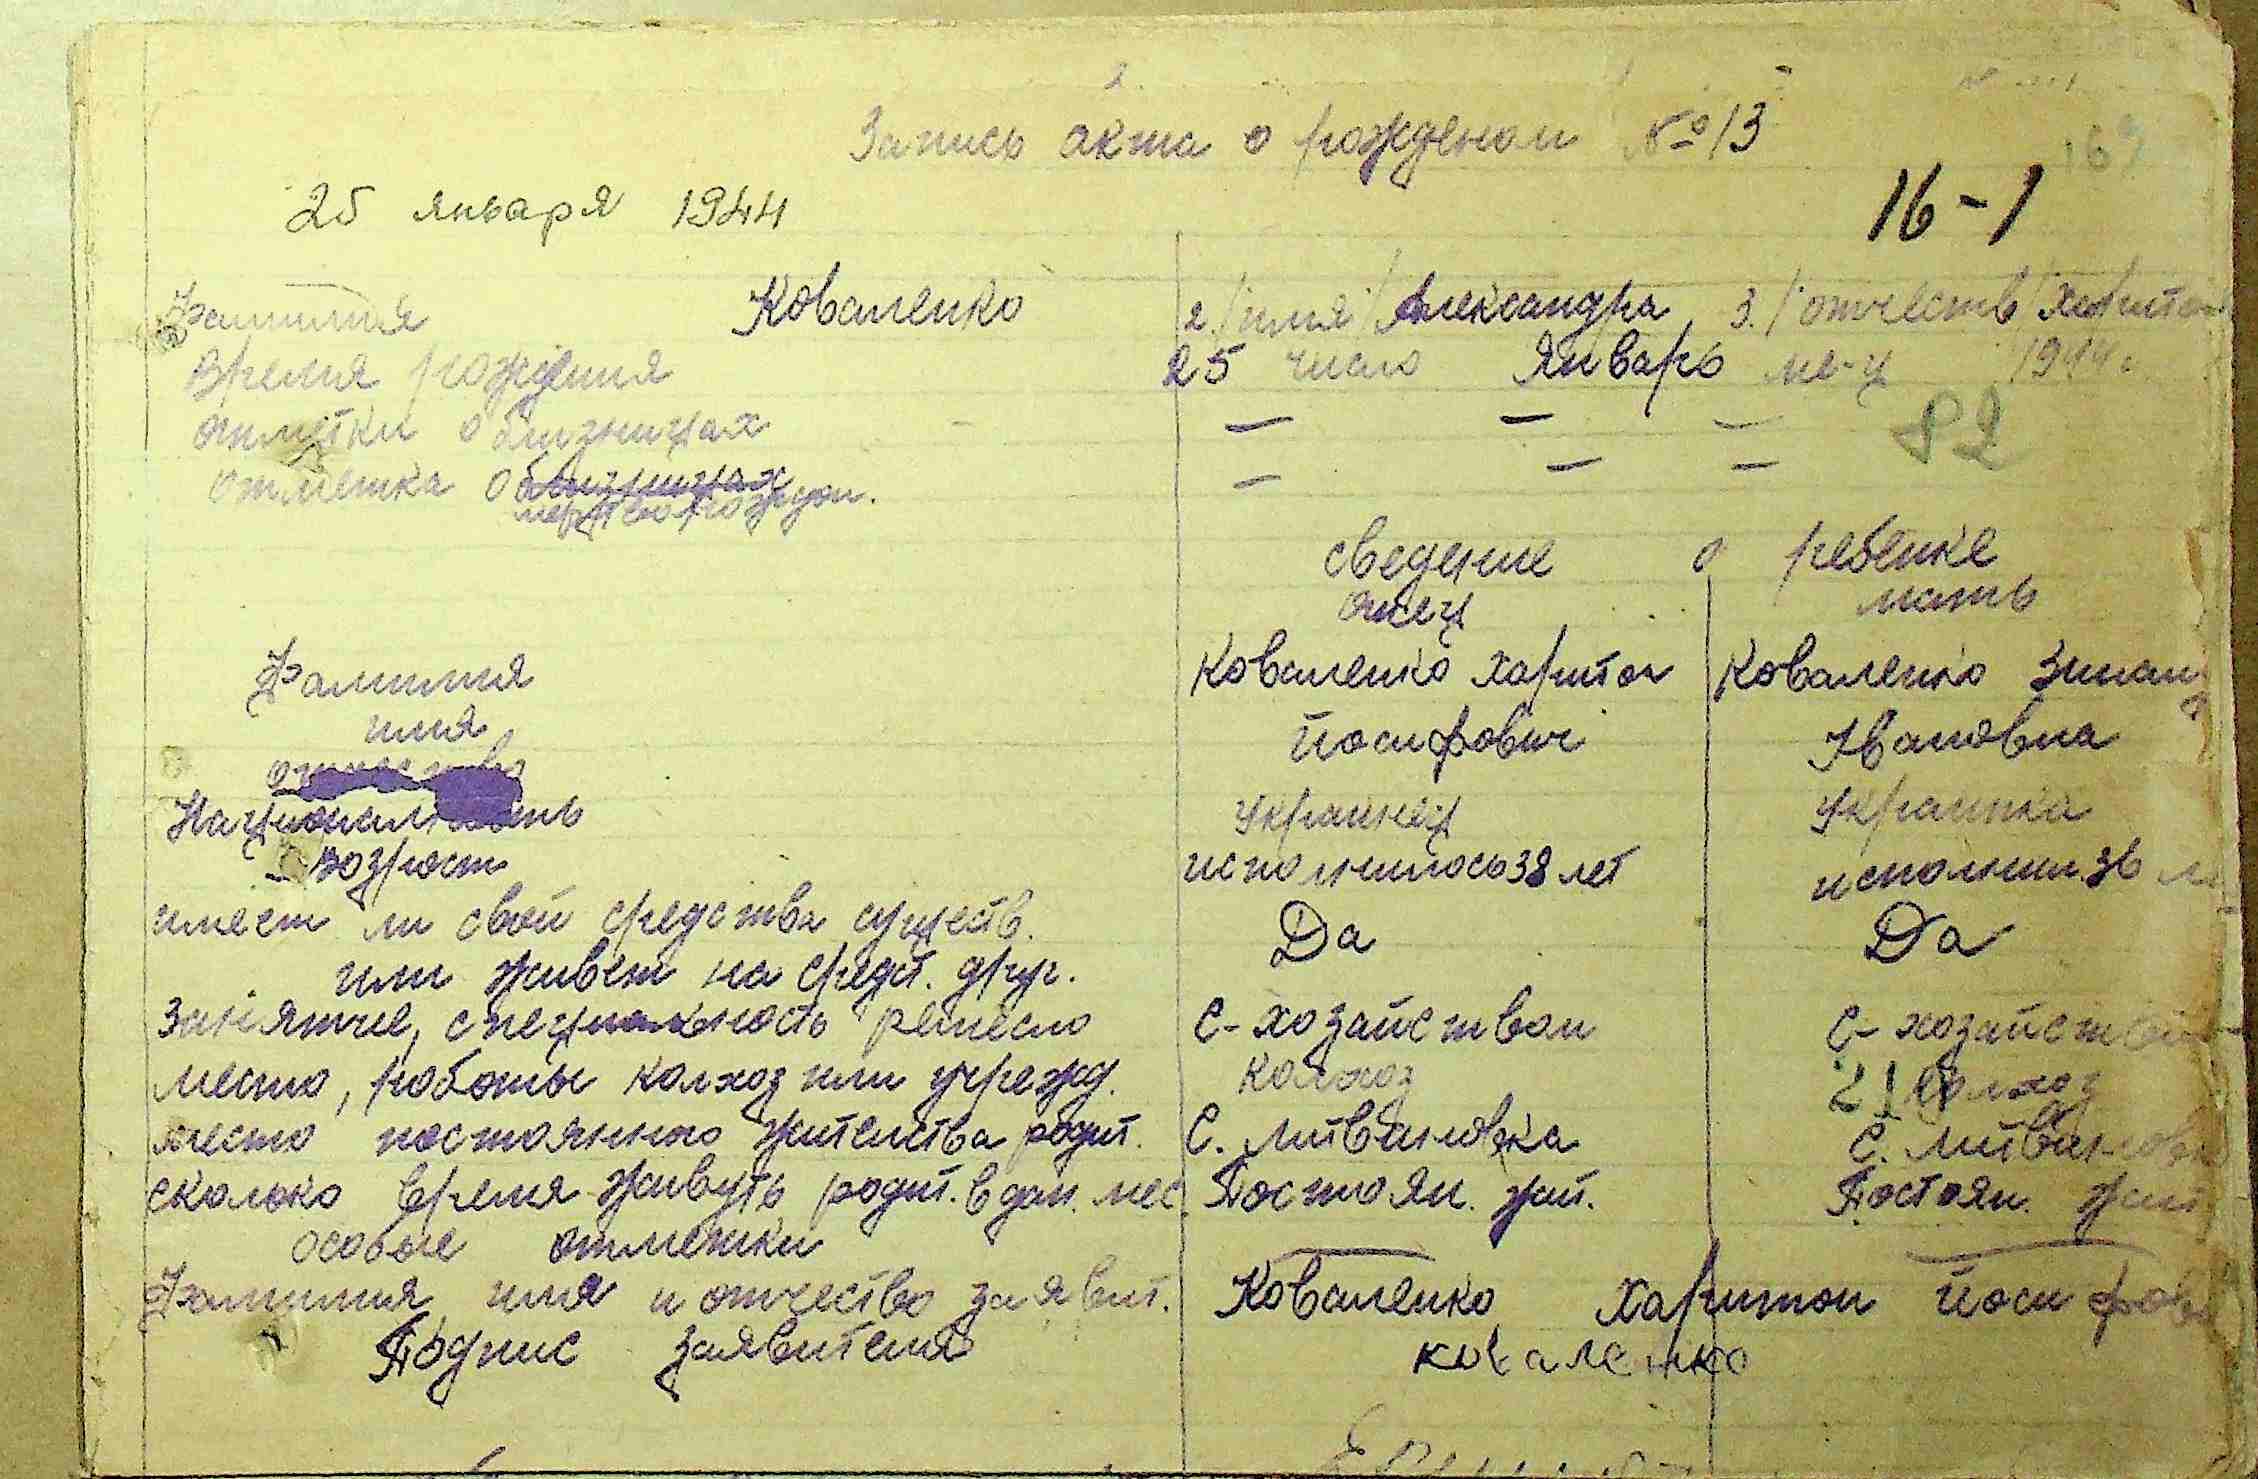 Запись акта о рожденом № 13
25 января 1944
16-1
Фамилия Коваленко 2./имя/ Александра 3./отчеств/ Харитон
Время рождения 25 число Январь ме-ц 1944 г
отметки о близницах — — —
82
отметка о близницах — — —
мертворожден.
сведение о ребенке
отец мать
Фамилия Коваленко Харитон Коваленко Зинаи
имя Йосифович Ивановна
отчество
Национальность Украинец Украинка
возрост исполнилось 38 лет исполнил. 36 ле
имеет ли свои средства существ. Да Да
или живет на средст. друг.
Заніятие, специальность ремесло С-хозайством С-хозайством
место, работы колхоз или учрежд. колхоз колхоз
место постоянного жительства родит. С. Литвиновка С. Литвиновка
сколько время живуть родит. в дан. мес. Постоян. жит. Постоян. жит
особые отметки — —
Фамилия имя и отчество заявит. Коваленко Харитон Йосифов
Подпис заявителя коваленко